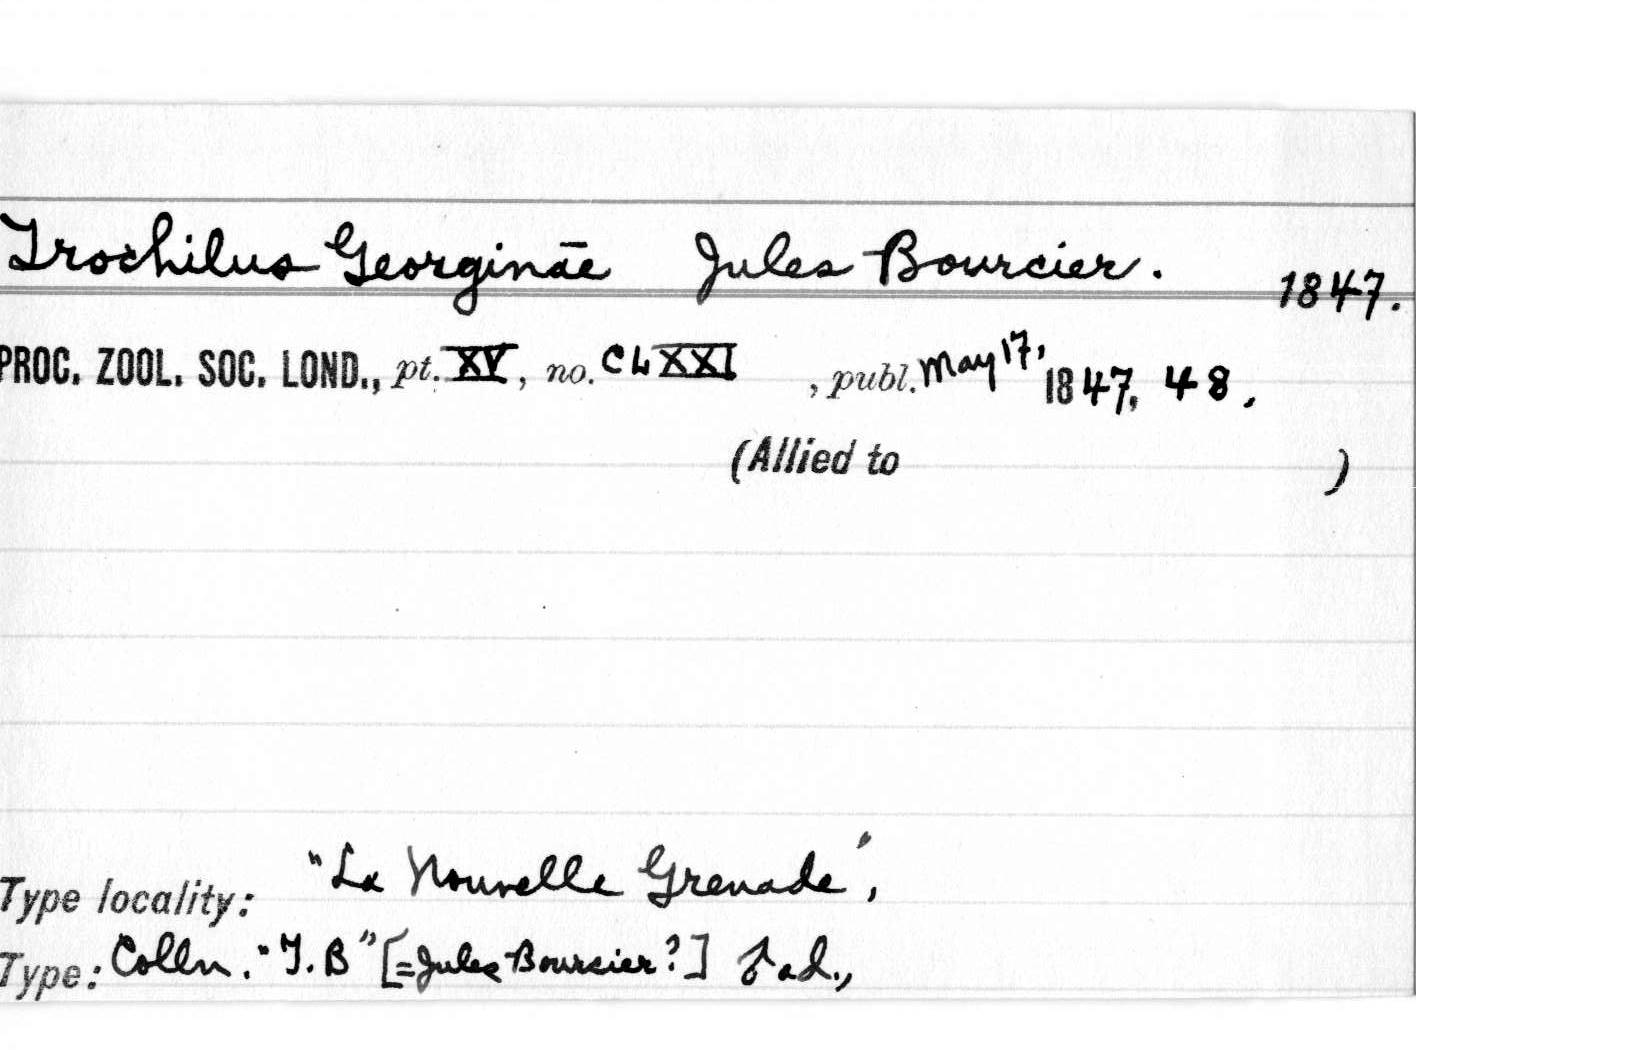 Trochilus Georginae Jules Bourcier. 1847.
PROC. ZOOL. SOC. LOND., pt. XV, no. CLXXI, publ. May 17, 1847, 48.
(Allied to )
Type locality: "La Nouvelle Grenade",
Type: Colln. "J.B" [=Jules Bourcier?] ♂ ad.,